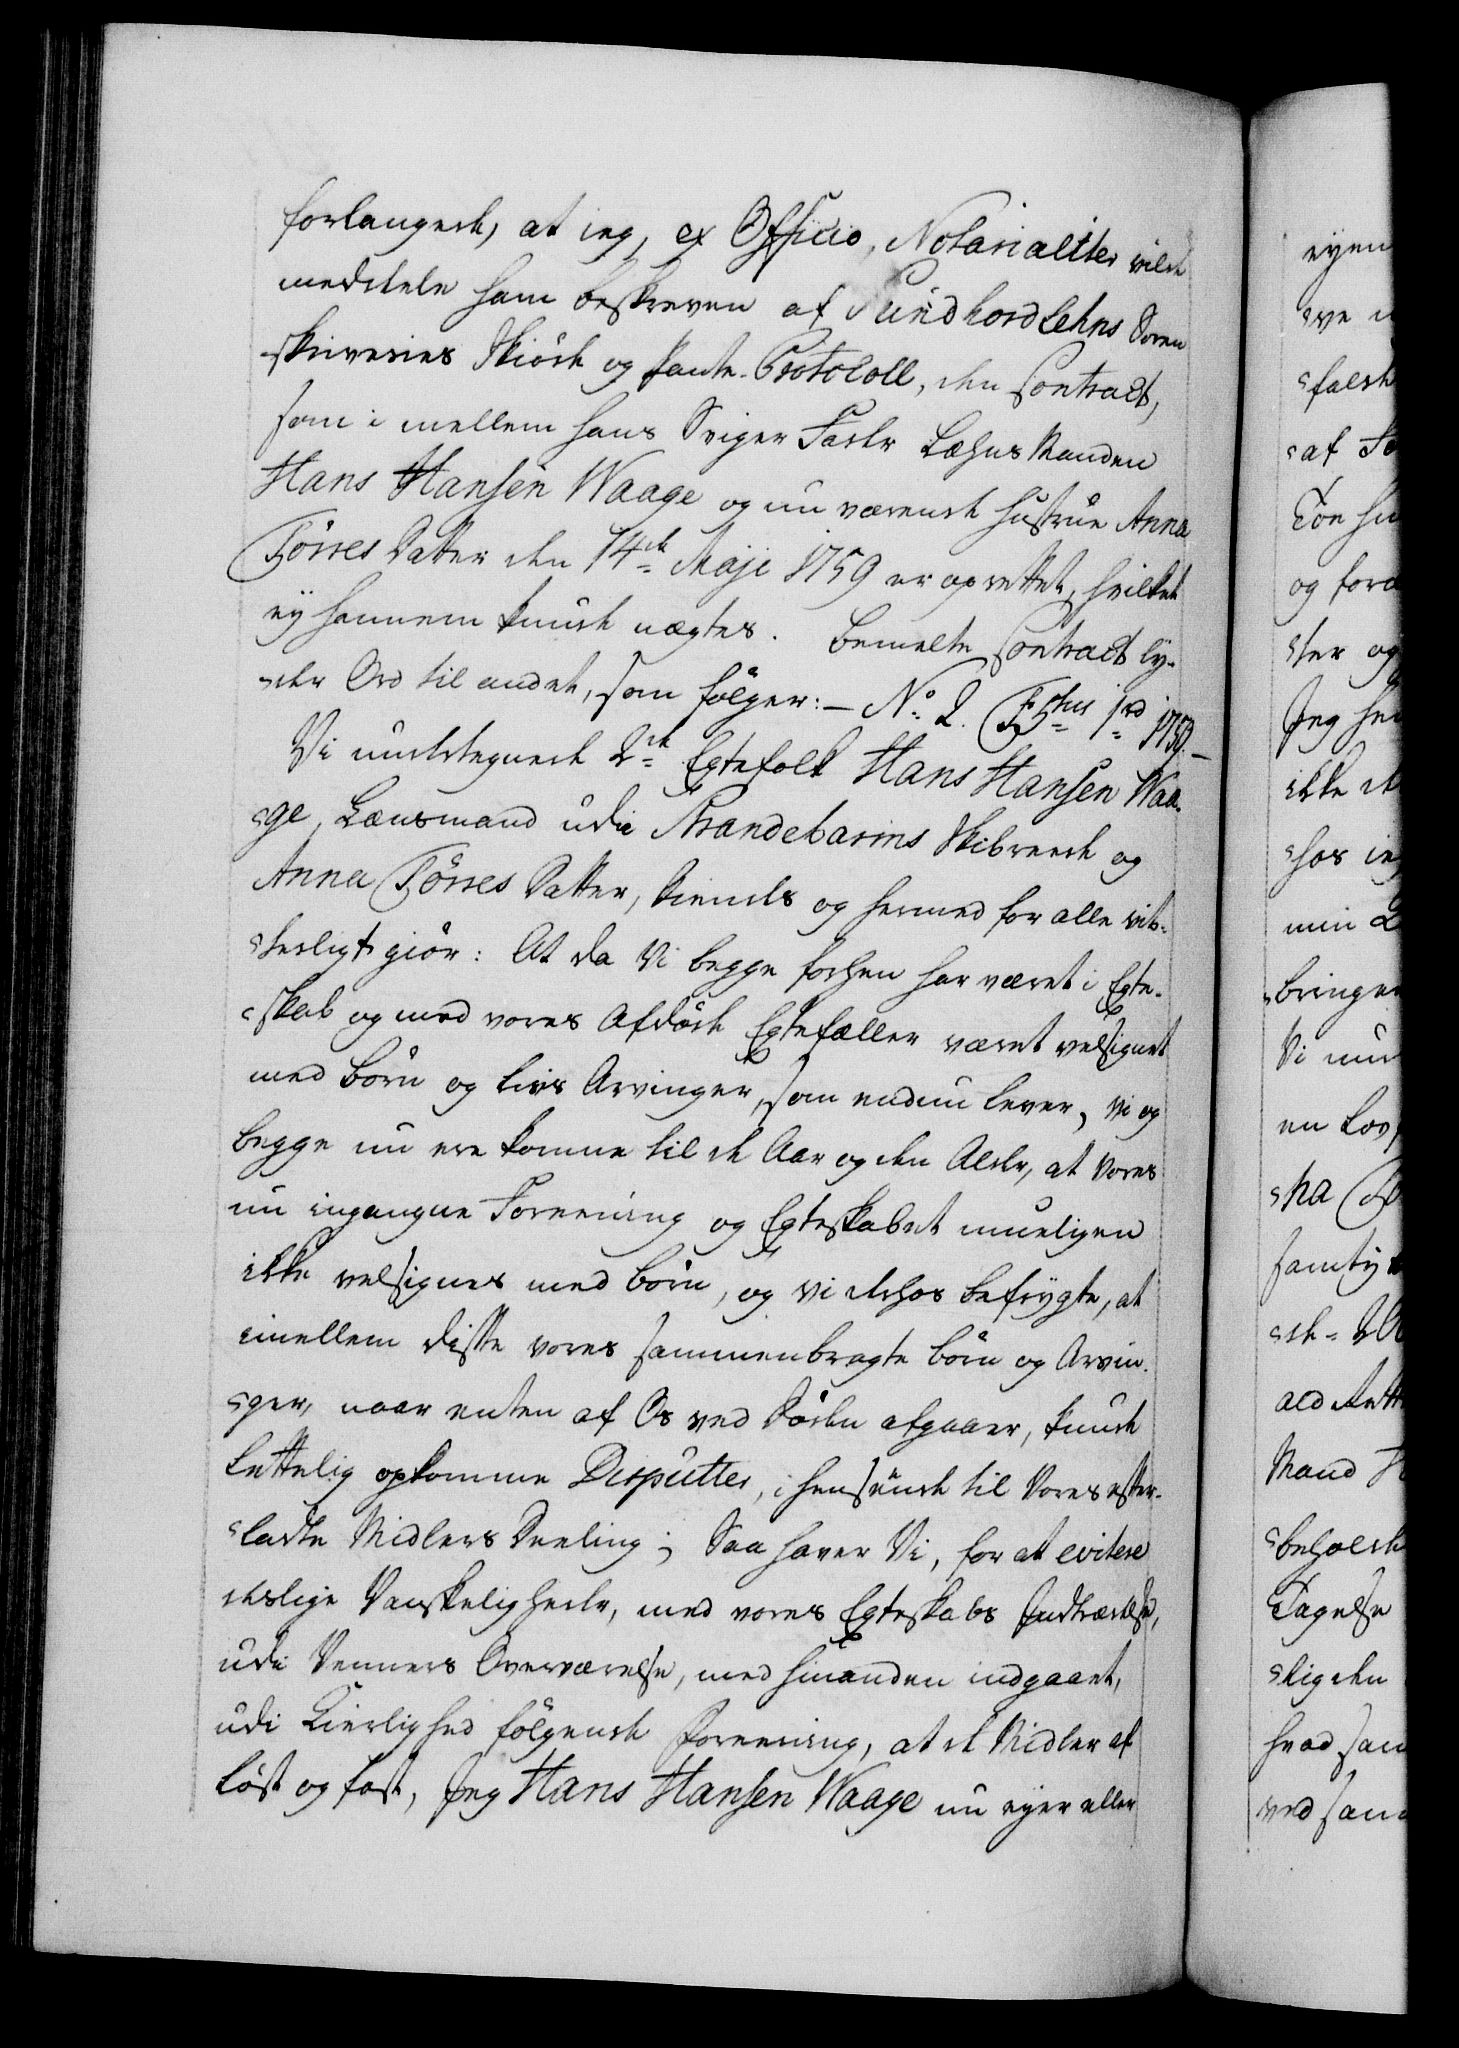 forlangede, at ieg, ex Officio, Notarialiter vilde
meddele ham beskreven af Sundhordlehns Soren
skriveries Skiöde og Pante-Protocoll, den Contract,
som i mellem hans Sviger Fader Lehns Manden
Hans Hansen Waage og nu værende Hustrue Anna
Törres Datter den 14de Maji 1759 er oprettet, hvilket
ey hannem kunde nægtes. Bemelte Contract ly-
der Ord til andet, som fölger: — No. 2.
Vi undertegnede 2de Egtefolk Hans Hansen Waa-
ge, Lænsmand udi Strandebarms Skibrede og
Anna Törres Datter, Kiendes og hermed for alle vit-
terligt giör: At da Vi begge forhen har været i Egte-
skab og med vores Afdöde Egtefæller været velsignet
med Börn og Livs Arvinger, som endnu lever, Vi og
begge nu ere komne til de Aar og den Alder, at vores
nu ingangne Foreening og Egteskabet mueligen
ikke velsignes med Börn, og vi derhos befrygte, at
imellem disse vores sammenbragte Börn og Arvin-
ger, naar enten af Os ved Döden afgaaer, kunde
lettelig opkomme Disputter, i henseende til Vores efter-
ladte Midlers Deeling; Saa haver Vi, for at evitere
deslige Vanskeligheder, med vores Egteskabs Indtrædelse,
udi Venners Overværelse, med hinanden indgaaet,
udi Kierlighed fölgende Foreening, at de Midler af
Löst og fast, Jeg Hans Hansen Waage nu eyer eller